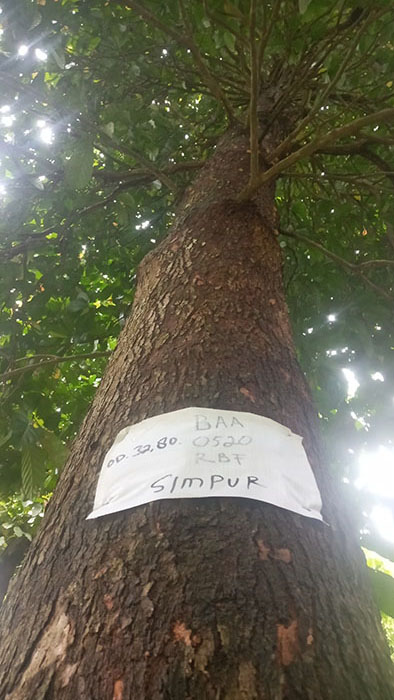 BAA
OD. 32,80. 0520
RBF
SIMPUR